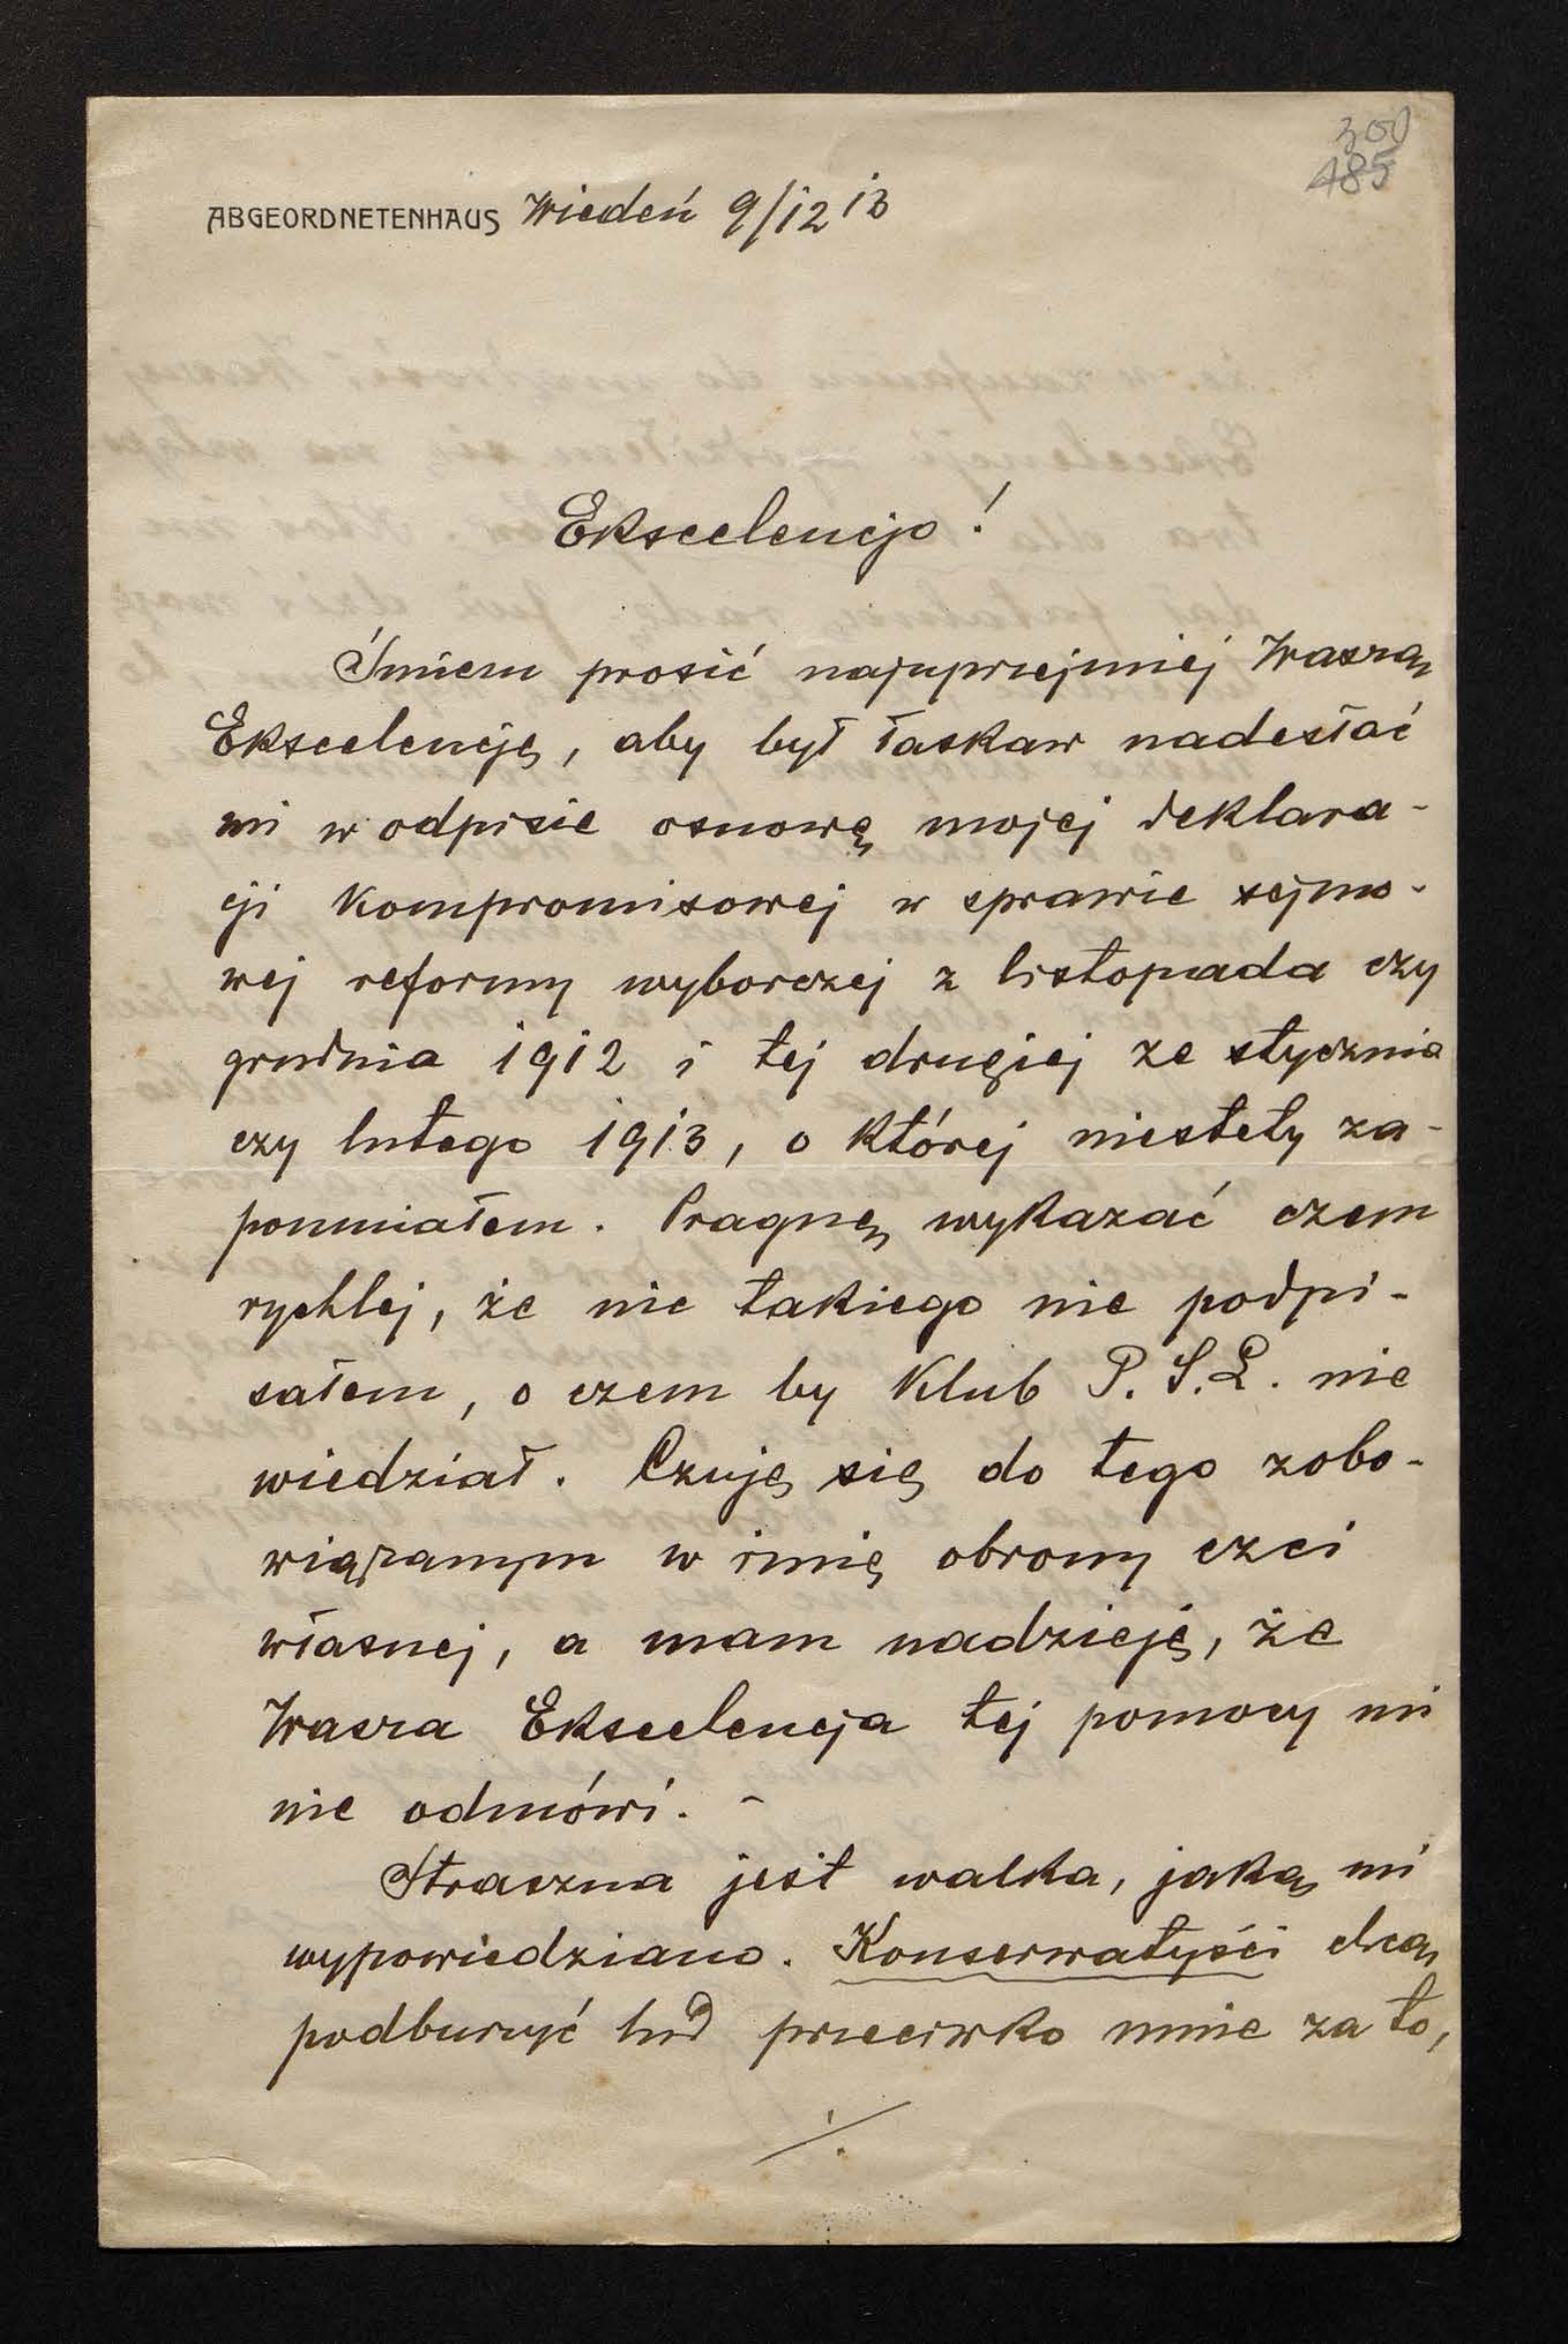 300
485
ABGEORDNETENHAUS Wiedeń 9/12 13
Ekscelencjo!
Śmiem prosić najuprzejmiej Waszą
Ekscelencję, aby był łaskaw nadesłać
mi w odpisie osnowę mojej deklara-
cji kompromisowej w sprawie sejmo-
wej reformy wyborczej z listopada czy
grudnia 1912 i tej drugiej ze stycznia
czy lutego 1913, o której niestety za-
pomniałem. Pragnę wykazać czem
rychlej, że nic takiego nie podpi-
sałem, o czem by Klub P. S. L. nie
wiedział. Czuję się do tego zobo-
wiązanym w imię obrony czci
własnej, a mam nadzieję, że
Wasza Ekscelencja tej pomocy mi
nie odmówi. -
Straszna jest walka, jaką mi
wypowiedziano. Konserwatyści chcą
podburzyć lud przeciwko mnie za to,
./.